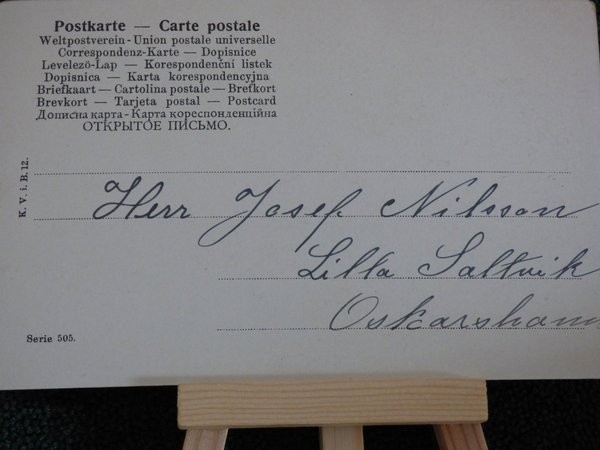 Postkarte — Carte postale
Weltpostverein - Union postale universelle
Correspondenz-Karte — Dopisnice
Levelező-Lap — Korespondenční lístek
Dopisnica — Karta korespondencyjna
Briefkaart — Cartolina postale — Brefkort
Brevkort — Tarjeta postal — Postcard
Дописна карта - Карта кореспонденційна
ОТКРЫТОЕ ПИСЬМО.
K. V. i. B. 12.
Herr Josef Nilsson
Lilla Saltvik
Oskarshamn
Serie 505.